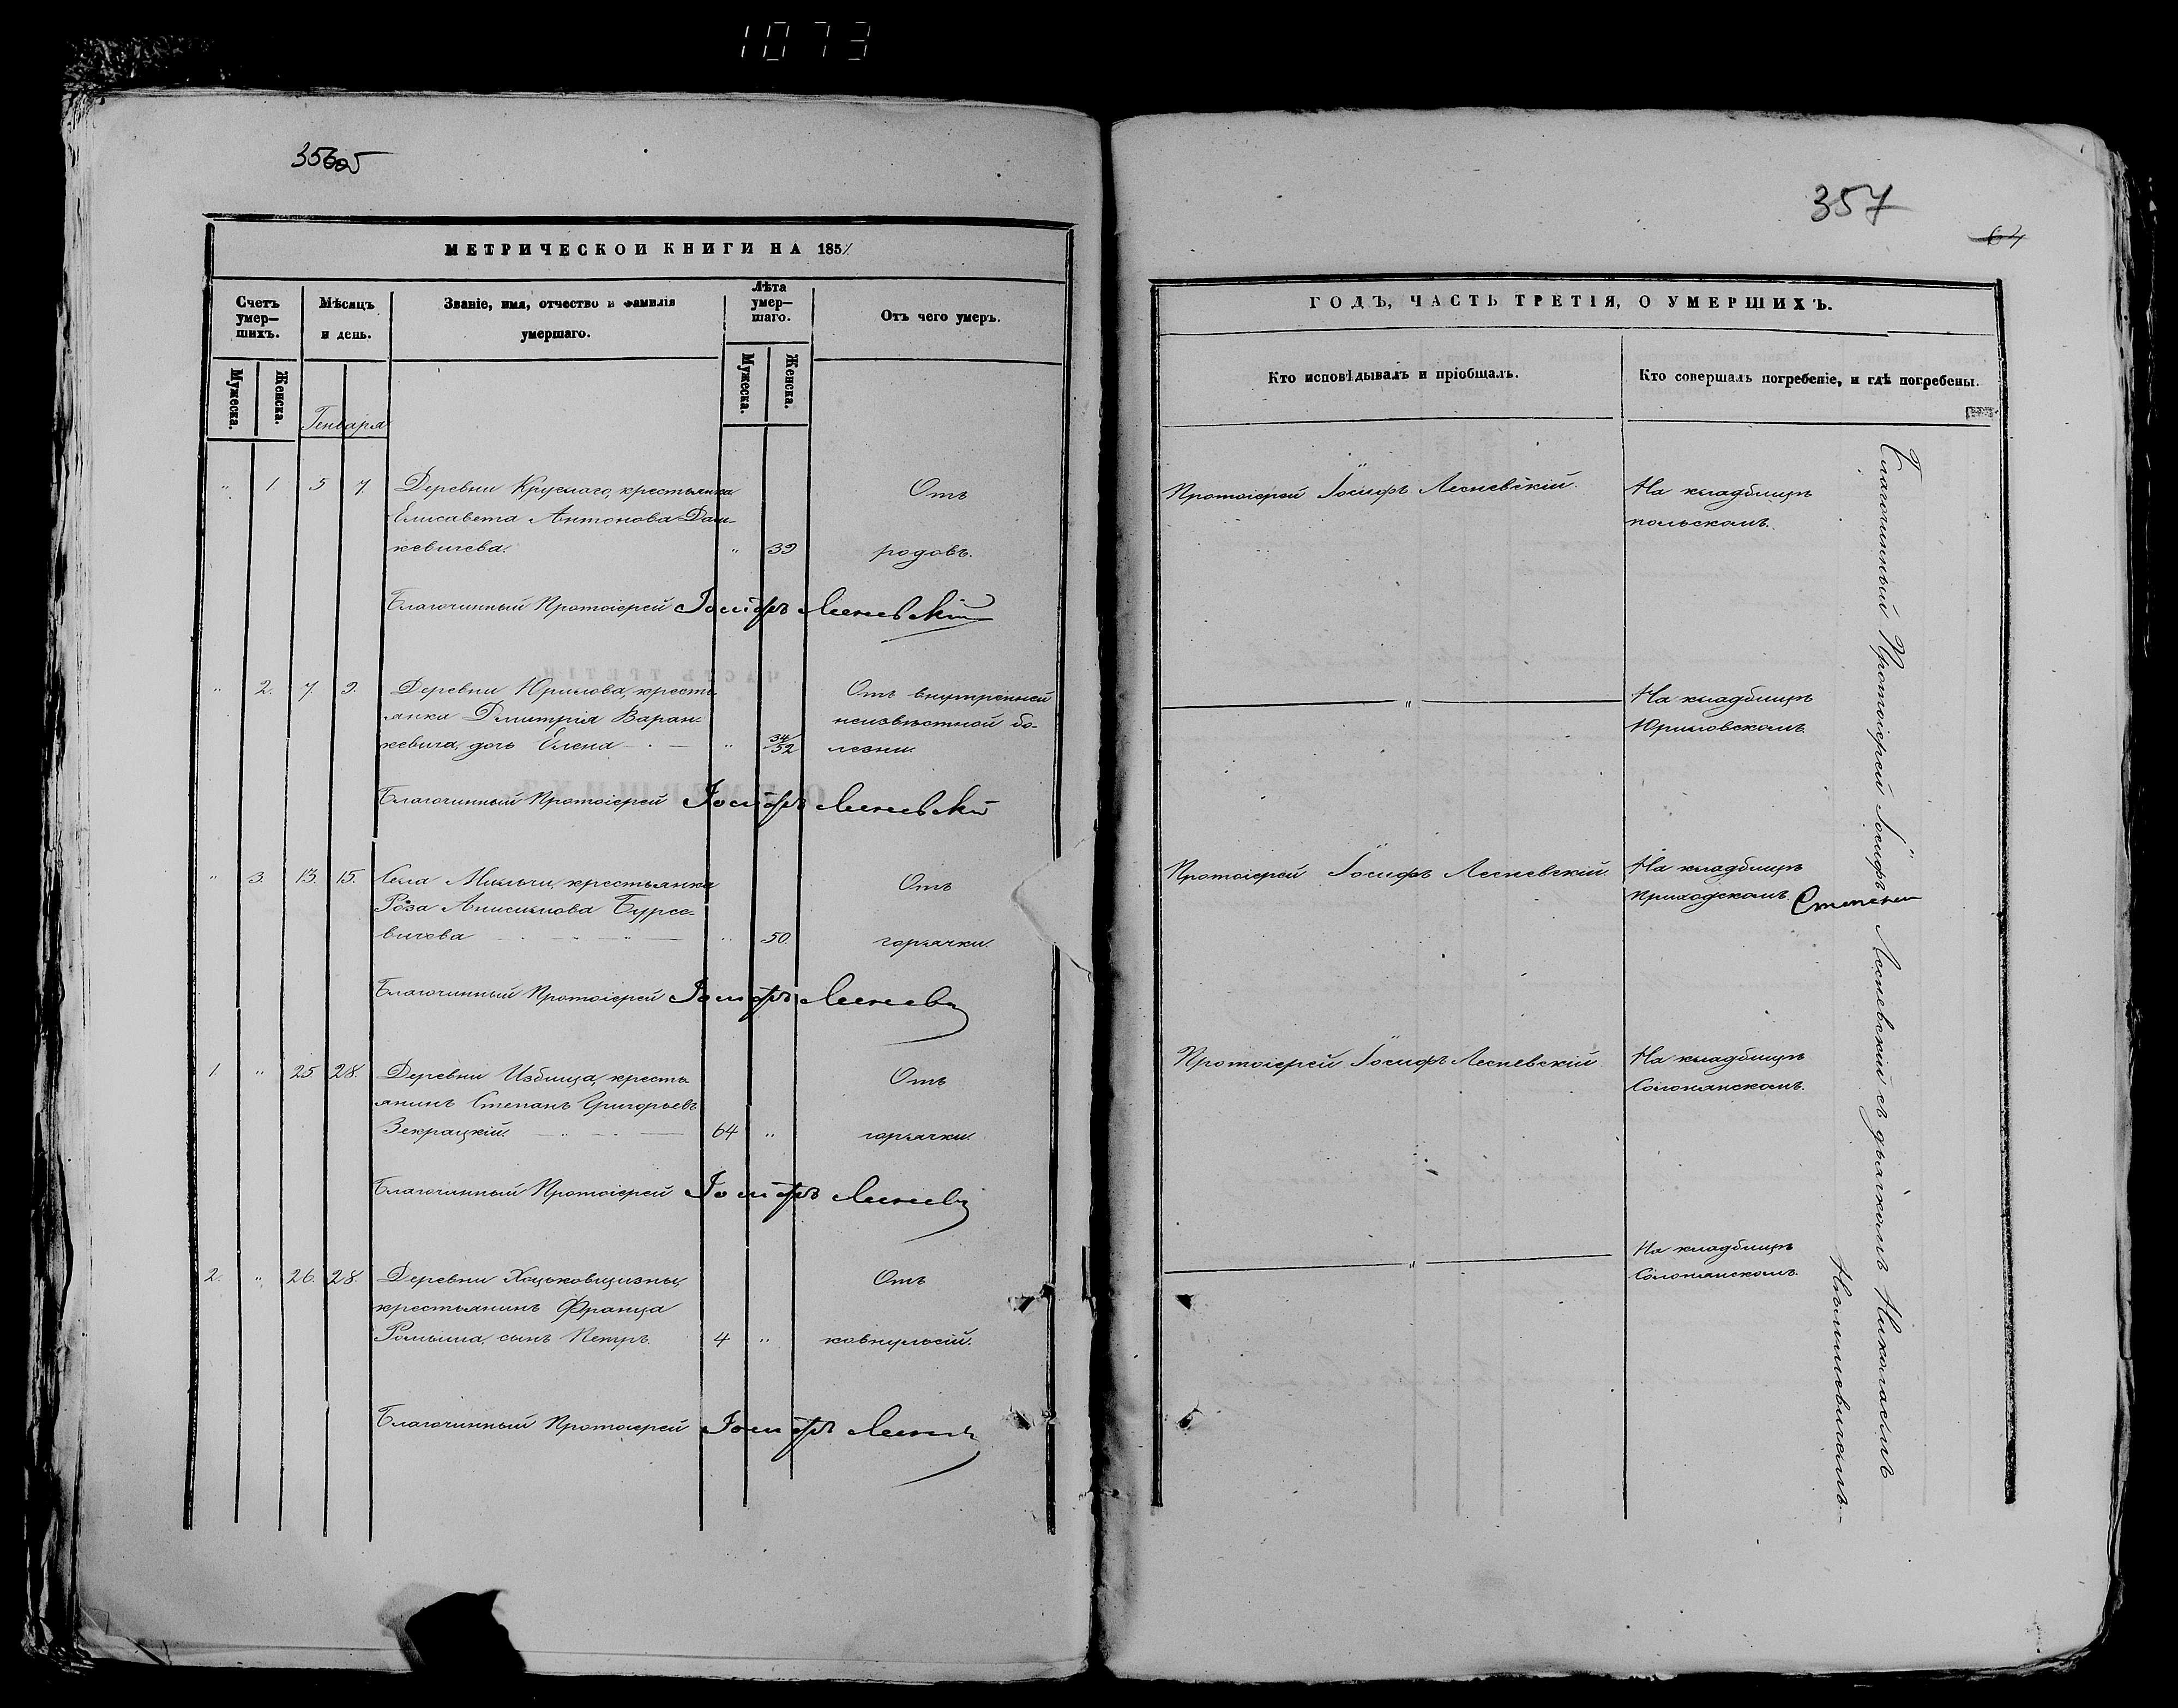 1073
357
64
МЕТРИЧЕСКОЙ КНИГИ НА 185
Счетъ умер-
шихъ.
Мѣсяцъ
и день.
Званіе, имя, отчество и фамилія
умершаго.
Лѣта
умер-
шаго.
Отъ чего умеръ.
Мужеска.
Женска.
Генваря
Мужеска.
Женска.
" 1. 5 7. Деревни Круглаго, крестьянка Отъ
Елисавета Антонова Даш-
кевичева. " 39 родовъ.
Благочинный Протоіерей Іосифъ Лесневскій
" 2. 7. 9. Деревни Юрилова, кресть- Отъ внутренней
янка Димитрія Варан- неизвѣстной бо-
кевича, дочь Елена " 34/52 лезни.
Благочинный Протоіерей Іосифъ Лесневскій
" 3. 13. 15. Села Мильчи, крестьянка Отъ
Роза Анисимова Бурсе-
вичева " 50. горячки.
Благочинный Протоіерей Іосифъ Лесневск
1 " 25 28. Деревни Избища, кресть- Отъ
янинъ Степанъ Григорьевъ
Зекрацкій. 64 " горячки.
Благочинный Протоіерей Іосифъ Лесневск
2. " 26. 28. Деревни Хоцьковщизны, Отъ
крестьянинъ Франца
сынъ Петръ. 4 " ковнульсій.
Благочинный Протоіерей Іосифъ Леснев
ГОДЪ, ЧАСТЬ ТРЕТІЯ, О УМЕРШИХЪ.
Кто исповѣдывалъ и пріобщалъ.
Кто совершалъ погребеніе, и гдѣ погребены.
Протоіерей Іосифъ Лесневскій. На кладбищѣ
польскомъ.
" На кладбищѣ
Юриловскомъ.
Протоіерей Іосифъ Лесневскій. На кладбищѣ
приходскомъ.
Протоіерей Іосифъ Лесневскій На кладбищѣ
Солонянскомъ.
" На кладбищѣ
Солонянскомъ.
Благочинный Протоіерей Іосифъ Лесневскій съ дьячкомъ Николаемъ